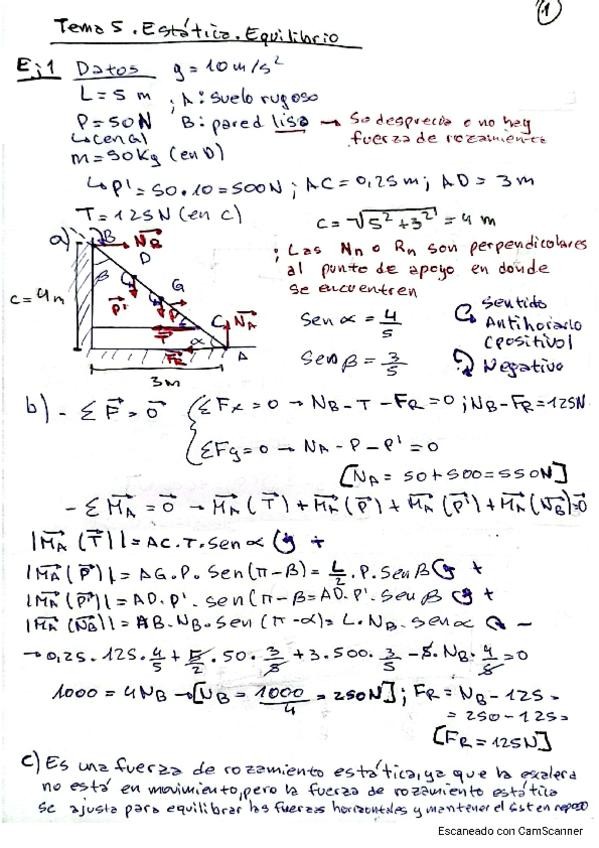 1
Tema 5. Estática. Equilibrio
Ej1 Datos g = 10 m/s²
L = 5 m ; A: suelo rugoso
P = 50 N B: pared lisa → Se desprecia o no hay
↳ cen G fuerza de rozamiento
m = 50 Kg (en D)
↳ P' = 50·10 = 500 N ; AC = 0,25 m ; AD = 3 m
T = 125 N (en C) c = √(5² + 3²) = 4 m
a) B N_B D β G P' P C N_A T α F_R A
c = 4m
3m
; Las Nn o Rn son perpendicolares
al punto de apoyo en donde
se encuentren
Sen α = 4/5
Sen β = 3/5
Sentido
Antihorario
(positivo)
Negativo
b) - Σ F = 0 { Σ Fx = 0 → N_B - T - F_R = 0 ; N_B - F_R = 125 N
Σ Fy = 0 → N_A - P - P' = 0
[N_A = 50 + 500 = 550 N]
- Σ M_A = 0 → M_A (T) + M_A (P) + M_A (P') + M_A (N_B) = 0
|M_A (T)| = AC · T · Sen α +
|M_A (P)| = AG · P · Sen (π - β) = L/2 · P · Sen β +
|M_A (P')| = AD · P' · Sen (π - β = AD · P' · Sen β +
|M_A (N_B)| = AB · N_B · Sen (π - α) = L · N_B · sen α -
→ 0,25 · 125 · 4/5 + 5/2 · 50 · 3/5 + 3 · 500 · 3/5 - 5 · N_B · 4/5 = 0
1000 = 4 N_B → [N_B = 1000/4 = 250 N] ; F_R = N_B - 125 =
= 250 - 125 =
[F_R = 125 N]
c) Es una fuerza de rozamiento estática, ya que la escalera
no está en movimiento, pero la fuerza de rozamiento estática
se ajusta para equilibrar las fuerzas horizontales y mantener el sist en reposo
Escaneado con CamScanner